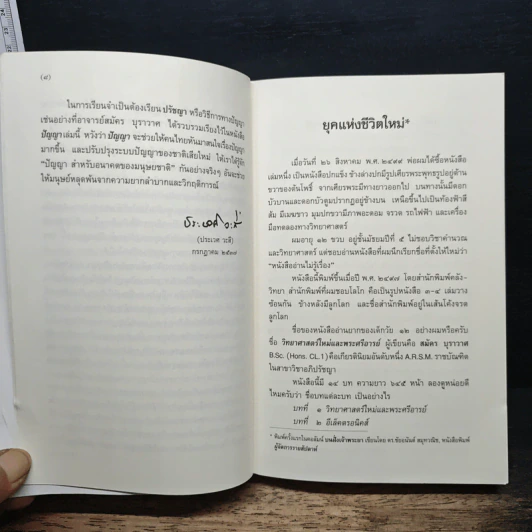 (๘)
ในการเรียนจำเป็นต้องเรียน ปรัชญา หรือวิธีการทางปัญญา
เช่นอย่างที่อาจารย์สมัคร บุราวาศ ได้รวบรวมเรียงไว้ในหนังสือ
ปัญญา เล่มนี้ หวังว่า ปัญญา จะช่วยให้คนไทยหันมาสนใจเรื่องปัญญา
มากขึ้น และปรับปรุงระบบปัญญาของชาติเสียใหม่ ให้เราได้รู้จัก
"ปัญญา สำหรับอนาคตของมนุษยชาติ" กันอย่างจริงๆ อันจะช่วย
ให้มนุษย์หลุดพ้นจากความยากลำบากและวิกฤติการณ์
ประเวศ วะสี
(ประเวศ วะสี)
กรกฎาคม ๒๕๓๗
ยุคแห่งชีวิตใหม่*
เมื่อวันที่ ๒๖ สิงหาคม พ.ศ. ๒๔๙๗ พ่อผมได้ซื้อหนังสือ
เล่มหนึ่ง เป็นหนังสือปกแข็ง ข้างล่างปกมีรูปเศียรพระพุทธรูปอยู่ด้าน
ขวาของต้นโพธิ์ จากเศียรพระมีทางยาวออกไป บนทางนั้นมีดอก
บัวบานและดอกบัวตูมปรากฏอยู่ข้างบน เหนือขึ้นไปเป็นท้องฟ้าสี
ส้ม มีเมฆขาว มุมปกขวามีภาพอะตอม จรวด รถไฟฟ้า และเครื่อง
มือทดลองทางวิทยาศาสตร์
ผมอายุ ๑๒ ขวบ อยู่ชั้นมัธยมปีที่ ๕ ไม่ชอบวิชาคำนวณ
และวิทยาศาสตร์ แต่ชอบอ่านหนังสือที่ผมนึกเรียกชื่อที่ตั้งให้ใหม่ว่า
"หนังสืออ่านไม่รู้เรื่อง"
หนังสือนี้พิมพ์ขึ้นเมื่อปี พ.ศ. ๒๔๙๗ โดยสำนักพิมพ์คลัง-
วิทยา สำนักพิมพ์ที่ผมชอบโลโก คือเป็นรูปหนังสือ ๓-๔ เล่มวาง
ซ้อนกัน ข้างหลังมีลูกโลก และชื่อสำนักพิมพ์อยู่ในเส้นโค้งจรด
ลูกโลก
ชื่อของหนังสืออ่านยากของเด็กวัย ๑๒ อย่างผมหรือครับ
ชื่อ วิทยาศาสตร์ใหม่และพระศรีอารย์ ผู้เขียนคือ สมัคร บุราวาศ
B.Sc. (Hons. CL.1) คือเกียรตินิยมอันดับหนึ่ง A.R.S.M. ราชบัณฑิต
ในสาขาวิชาอภิปรัชญา
หนังสือนี้มี ๑๔ บท ความยาว ๖๔๕ หน้า ลองดูหน่อยดี
ไหมครับว่า ชื่อบทแต่ละบท เป็นอย่างไร
บทที่ ๑ วิทยาศาสตร์ใหม่และพระศรีอารย์
บทที่ ๒ อีเล็คตรอนิคส์
* พิมพ์ครั้งแรกในคอลัมน์ บนฝั่งเจ้าพระยา เขียนโดย ดร.ชัยอนันต์ สมุทวณิช, หนังสือพิมพ์
ผู้จัดการรายสัปดาห์